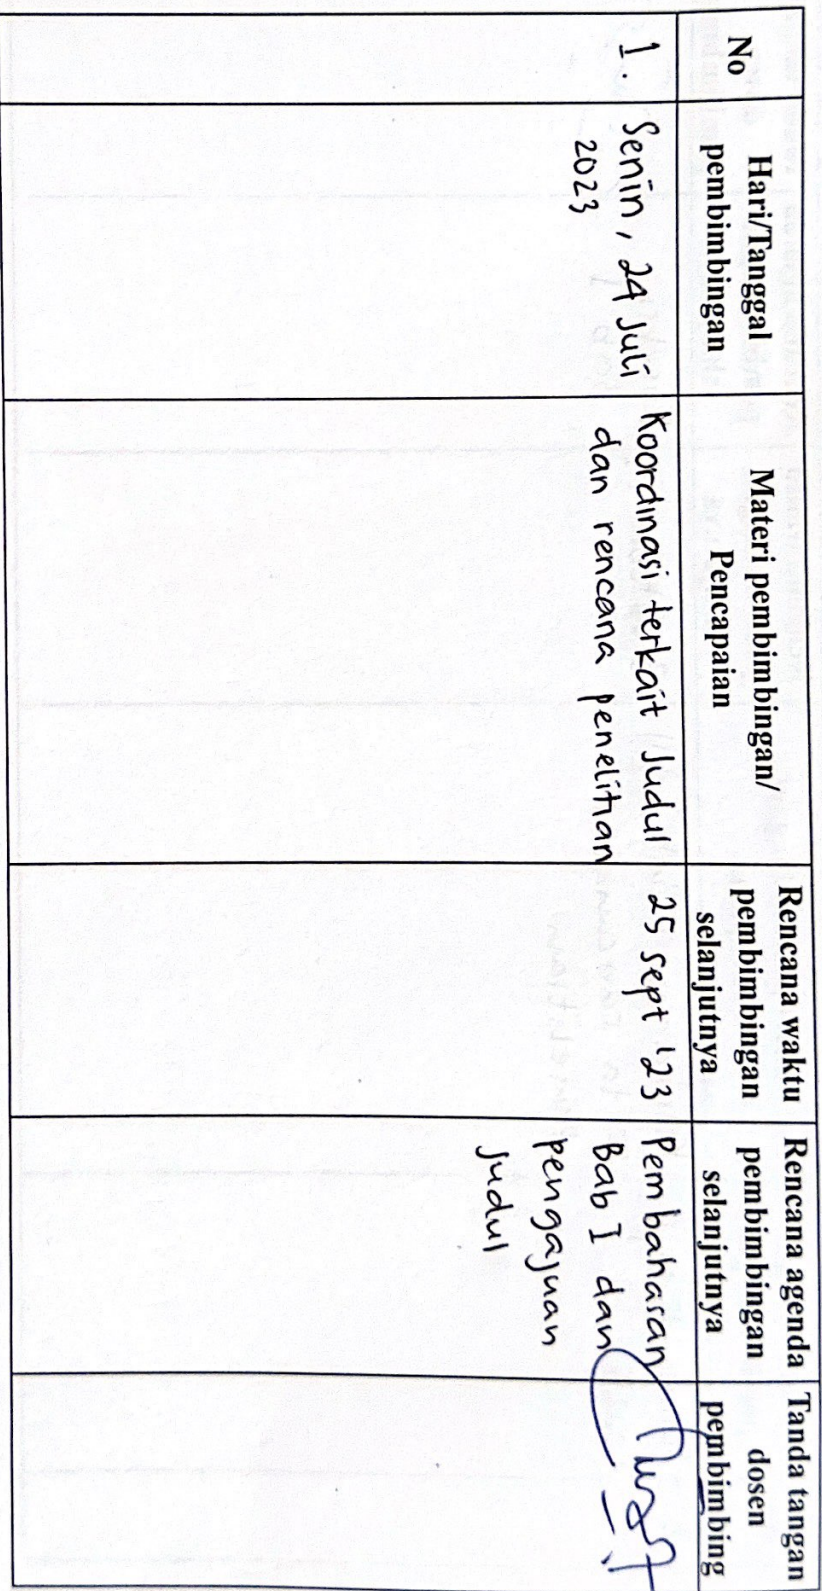 No
Hari/Tanggal
pembimbingan
Materi pembimbingan/
Pencapaian
Rencana waktu
pembimbingan
selanjutnya
Rencana agenda
pembimbingan
selanjutnya
Tanda tangan
dosen
pembimbing
1.
Senin, 24 Juli
2023
Koordinasi terkait Judul
dan rencana penelitian
25 Sept '23
Pembahasan
Bab I dan
pengajuan
Judul